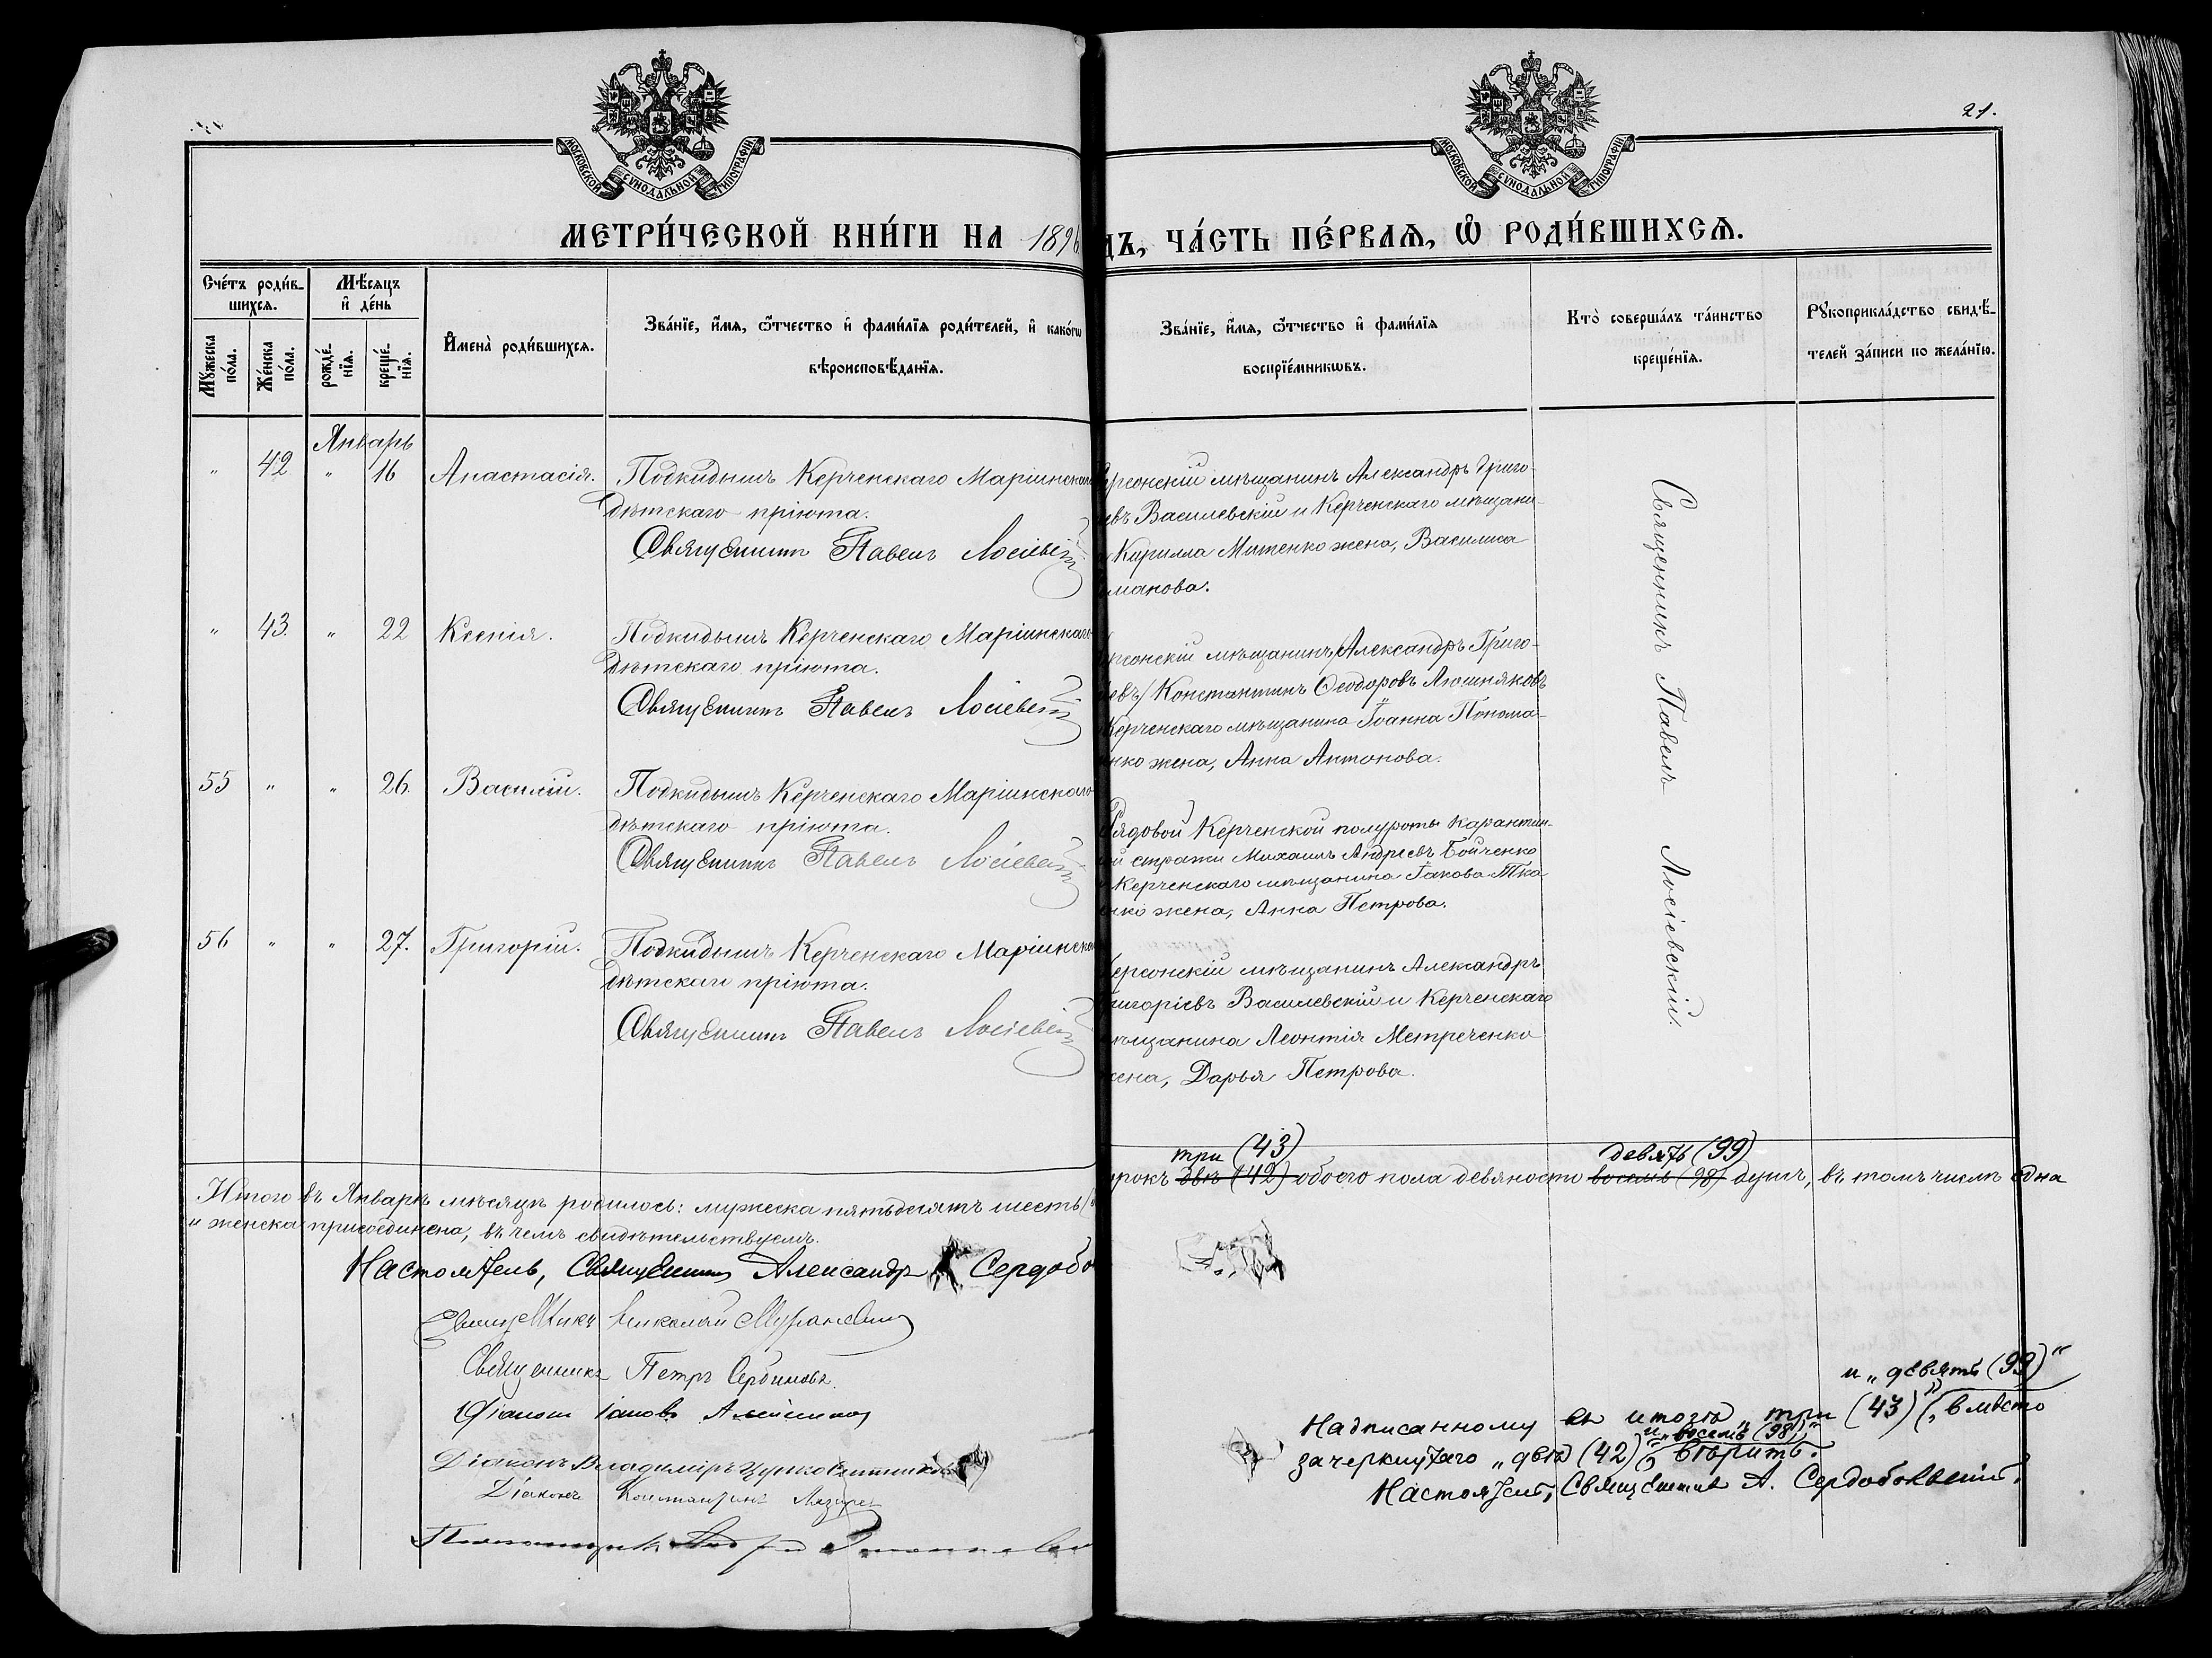 21.
МОСКОВСКОЙ СѴНОДАЛЬНОЙ ТИПОГРАФІИ
МОСКОВСКОЙ СѴНОДАЛЬНОЙ ТИПОГРАФІИ
МЕТРИ́ЧЕСКОЙ КНИ́ГИ НА 1896
ДЪ, ЧА́СТЬ ПЕ́РВАѦ, Ѡ РОДИ́ВШИХСѦ.
Сче́тъ роди́в-
шихсѧ.
Мꙋжеска по́ла.
Же́нска по́ла.
Мѣ́сѧцъ
и де́нь
рожде́-
нїѧ.
креще́-
нїѧ.
Имена̀ роди́вшихсѧ.
Зва́нїе, и́мѧ, ѻ́тчество и фами́лїѧ роди́телей, и како́гѡ
вѣроисповѣ́данїѧ.
Зва́нїе, и́мѧ, ѻ́тчество и фами́лїѧ
воспрїе́мникѡвъ.
Кто̀ соверша́лъ та́инство
креще́нїѧ.
Рꙋкоприкла́дство свидѣ́-
телей за́писи по жела́нїю.
Январь
" 42 " 16 Анастасія. Подкидышъ Керченскаго Маріинскаго
дѣтскаго пріюта.
Священникъ Павелъ Лосіевскій
ерсонскій мѣщанинъ Александръ Григо-
евъ Василевскій и Керченскаго мѣщани-
Кирилла Митенко жена, Василиса
манова.
" 43. " 22 Ксенія. Подкидышъ Керченскаго Маріинскаго
дѣтскаго пріюта.
Священникъ Павелъ Лосіевскій
ерсонскій мѣщанинъ /Александръ Григо-
евъ/ Константинъ Ѳеодоровъ Люшняковъ
Керченскаго мѣщанина Іоанна Понома-
енко жена, Анна Антонова.
55 " " 26. Василій. Подкидышъ Керченскаго Маріинскаго
дѣтскаго пріюта.
Священникъ Павелъ Лосіевскій
Рядовой Керченской полуроты карантин-
ой стражи Михаилъ Андреевъ Бойченко
и Керченскаго мѣщанина Іакова Тка-
енко жена, Анна Петрова.
56 " " 27. Григорій. Подкидышъ Керченскаго Маріинскаго
дѣтскаго пріюта.
Священникъ Павелъ Лосіевскій
ерсонскій мѣщанинъ Александръ
ригоріевъ Василевскій и Керченскаго
мѣщанина Леонтія Метреченко
жена, Дарья Петрова.
Священникъ Павелъ Лосіевскій.
три (43) девять (99)
Итого въ Январѣ мѣсяцѣ родилось: мужеска пятьдесятъ шесть
орокъ двѣ (42) обоего пола девяносто восемь (98) душъ, въ томъ числѣ одна
и женска присоединена, въ чемъ свидѣтельствуемъ.
Настоятель, Священникъ Александръ Сердобо
Священникъ Николай
Священникъ Петръ Сербиновъ.
Діаконъ Іаковъ
Діаконъ Владиміръ
Діаконъ Константинъ
и „девять (99)"
Надписанному въ итогѣ „три (43)", вмѣсто
и „восемь (98)",
зачеркнутаго „двѣ (42)", вѣрить.
Настоятель, Священникъ А. Сердобольскій.